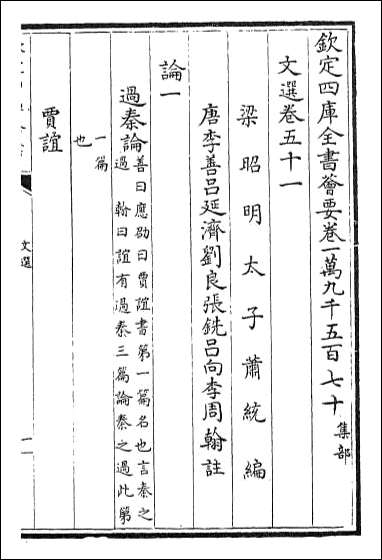 欽定四庫全書薈要卷一萬九千五百七十 集部
文選卷五十一
梁昭明太子蕭統編
唐李善呂延濟劉良張銑呂向李周翰註
論一
過秦論善曰應劭曰賈誼書第一篇名也言秦之
過 翰曰誼有過秦三篇論秦之過此第
一篇
也
賈誼
文選
一